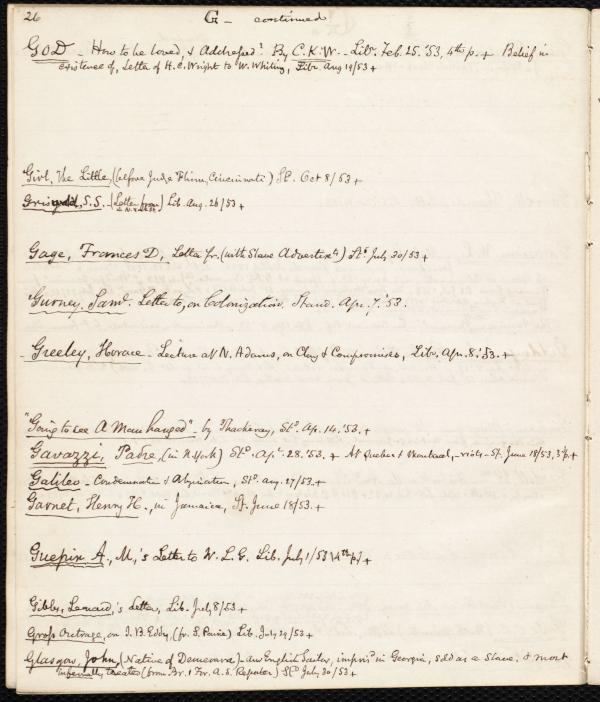 26
G - continued
GOD - How to be loved, & Addressed? By C. K. W. - Lib. Feb. 25. '53, 4th p. + Belief in
existence of, Letter of H. C. Wright to W. Whiting, Lib. Aug 19/53 +
Girl, the Little, (before Judge Flinn, Cincinnati) St. Oct 8/53 +
Griswold, S. S. (Letter from) Lib. Aug. 26/53 +
Gage, Frances D., Letter fr. (with Slave Advertists) Std July 30/53 +
Gurney, Saml. Letter to, on Colonization. Stand. Apr. 7. '53.
- Greeley, Horace - Lecture at N. Adams, on Clay & Compromises, Lib. Apr. 8. '53. +
"Going to see A Man hanged" - by Thackeray, Std. Ap. 14. '53. +
Gavazzi, Padre, (in N. York) Std. Apl. 28. '53. + At Quebec & Montreal, - riots - St. June 18/53, 3d p. +
Galileo - Condemnation & Abjuration, Std. Aug. 27/53. +
Garnet, Henry H., in Jamaica, St. June 18/53. +
Guepin A., M,'s Letter to W. L. G. Lib. July 1/53 (4th p) +
Gibbs, Leonard,'s Letter, Lib. July 8/53 +
Gross Outrage, on I. B. Eddy, (fr. S. Paine) Lib. July 29/53 +
Glasgow, John, (Native of Demerara) - an English Sailor, impris'd in Georgia, sold as a Slave, & most
infernally treated (from Br. & For. A. S. Reporter) Std July 30/53 +